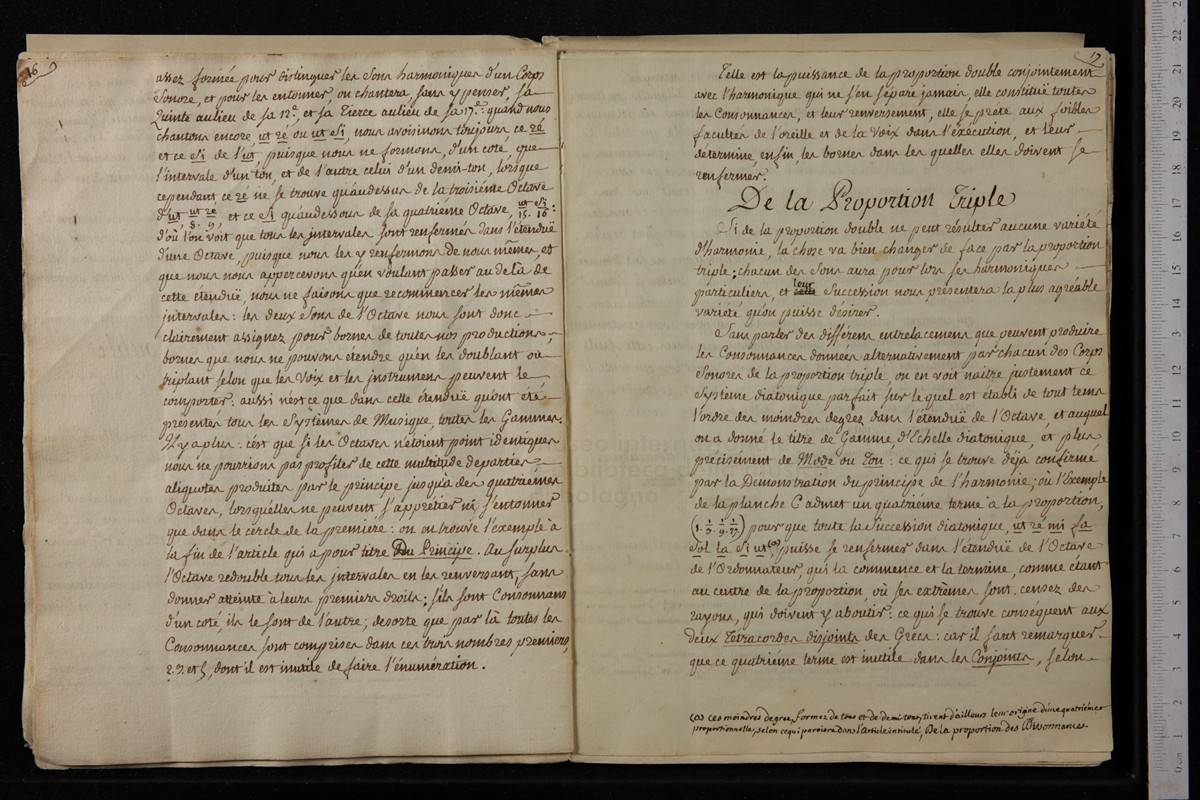 16
assez formée pour distinguer les Sons harmoniques d'un Corps
Sonore, et pour les entonner, on chantera, sans y penser, sa
Quinte aulieu de sa 12.e et sa Tierce aulieu de sa 17.e: quand nous
chantons encore, ut ré, ou ut si, nous avoisinons toujours ce ré
et ce si de l'ut, puisque nous ne formons, d'un coté, que
l'intervale d'un ton, et de l'autre celui d'un demi-ton, lorsque
cependant ce ré ne se trouve qu'audessus de la troisiéme Octave
d'ut, ut ré 8. 9, et ce si qu'audessous de sa quatriéme Octave, ut si 15. 16:
d'où l'on voit que tous les jntervales sont renfermés dans l'étenduë
d'une Octave, puisque nous les y renfermons de nous mêmes, et
que nous nous appercevons qu'en voulant passer au delà de
cette étenduë, nous ne faisons que recommencer les mêmes
intervales: les deux Sons de l'Octave nous sont donc
clairement assignez pour bornes de toutes nos productions,
bornes que nous ne pouvons étendre qu'en les doublant ou
triplant selon que les Voix et les jnstrumens peuvent le
comporter: aussi n'est ce que dans cette étenduë qu'ont été
presentés tous les Systêmes de Musique, toutes les Gammes.
Il y a plus: c'est que si les Octaves n'étoient point identiques
nous ne pourrions pas profiter de cette multitude de parties
aliquotes produites par le principe jusqu'à des quatriémes
Octaves, lorsqu'elles ne peuvent s'apprétier ni s'entonner
que dans le cercle de la premiere: on en trouve l'exemple à
la fin de l'article qui a pour titre Du Principe. Au surplus
l'Octave redouble tous les jntervales en les renversant, sans
donner atteinte à leurs premiers droits: s'ils sont Consonnans
d'un coté, ils le sont de l'autre; desorte que par là toutes les
Consonnances sont comprises dans ces trois nombres premiers,
2. 3. et 5, dont il est inutile de faire l'énumération.
17
Telle est la puissance de la proportion double conjointement
avec l'harmonique qui ne s'en sépare jamais, elle constituë toutes
les Consonnances, et leur renversement, elle se préte aux foibles
facultés de l'oreille et de la Voix dans l'exécution, et leur
détermine, enfin, les bornes dans les quelles elles doivent se
renfermer.
De la Proportion Triple
Si de la proportion double ne peut résulter aucune variété
d'harmonie, la chose va bien changer de face par la proportion
triple; chacun des Sons aura pour lors ses harmoniques
particuliers, et leur succession nous présentera la plus agréable
variété qu'on puisse désirer.
Sans parler des différens entrelacemens que peuvent produire
les Consonnances données alternativement par chacun des Corps
Sonores de la proportion triple, on en voit naitre justement ce
Systême diatonique parfait sur le quel est établi de tout tems
l'ordre des moindres degrez dans l'étenduë de l'Octave, et auquel
on a donné le titre de Gamme, d'Echelle diatonique, et plus
précisement de Mode ou Ton: ce qui se trouve déja confirmé
par la Démonstration du principe de l'harmonie; où l'Exemple
de la planche C admet un quatriéme terme à la proportion,
(1. 1/3. 1/9. 1/27.) pour que toute la Succession diatonique, ut ré mi fa
sol la si ut (a), puisse se renfermer dans l'étenduë de l'Octave
de l'Ordonnateur, qui la commence et la termine, comme étant
au centre de la proportion, où ses extrèmes sont censez des
rayons, qui doivent y aboutir: ce qui se trouve conséquent aux
deux Tetracordes disjoints des Grecs: car il faut remarquer
que ce quatriéme terme est inutile dans les Conjoints, selon
(a) Ces moindres degrez, formez de tons et de demi-tons, tirent d'ailleurs leur origine d'une quatriéme
proportionnelle, selon ce qui paroitra dans l'Article intitulé, De la proportion des Dissonnances.